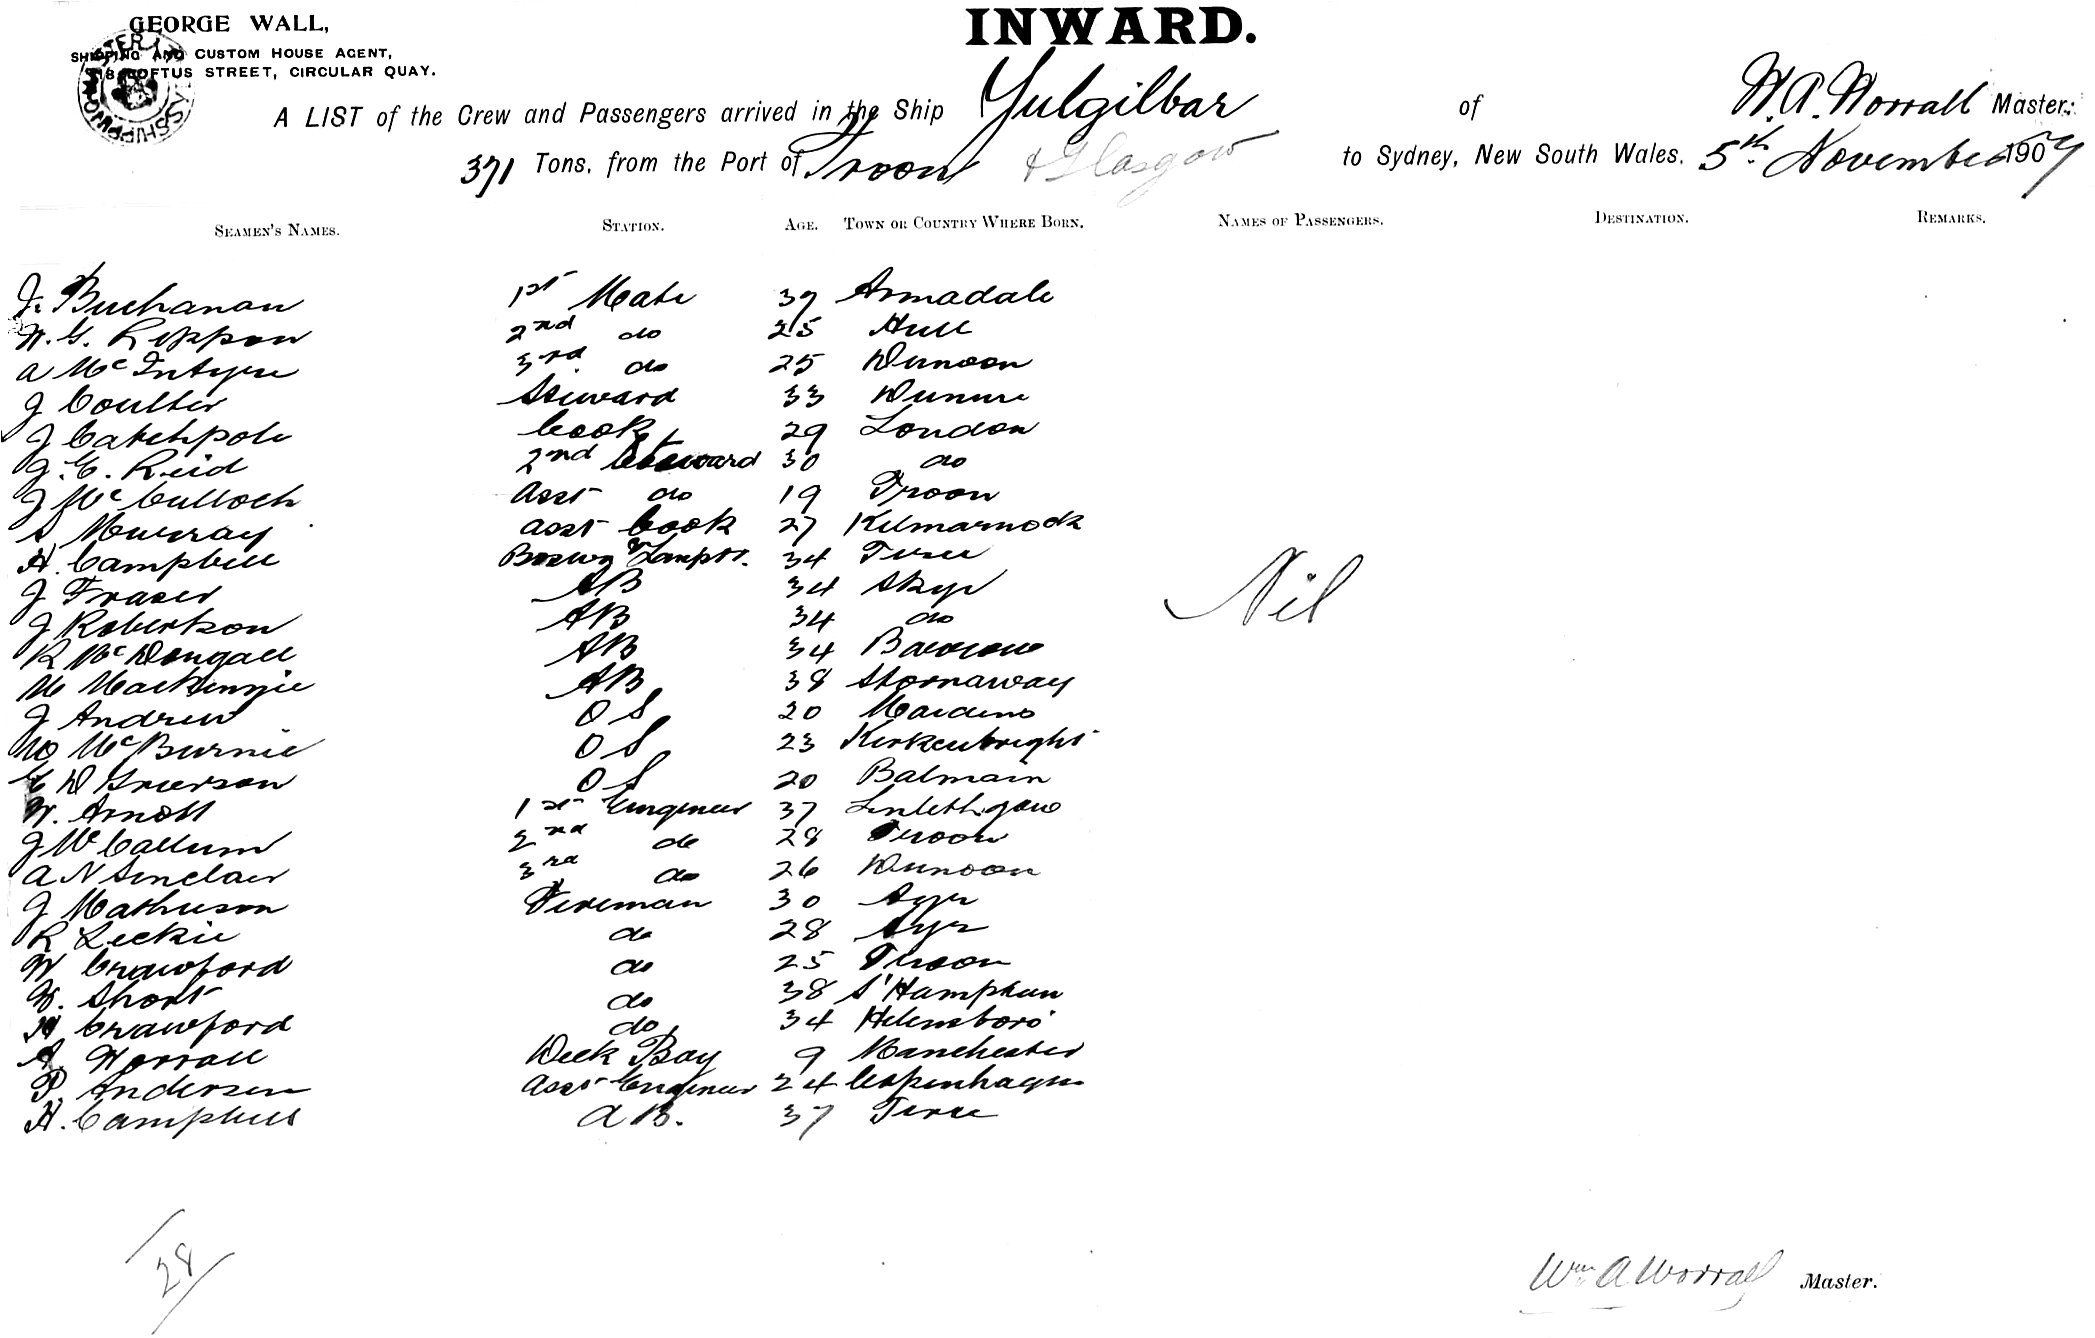 GEORGE WALL,
SHIPPING AND CUSTOM HOUSE AGENT,
LOFTUS STREET, CIRCULAR QUAY.
INWARD.
A LIST of the Crew and Passengers arrived in the Ship Yulgilbar of W. A. Worrall Master,
371 Tons, from the Port of Troon & Glasgow to Sydney, New South Wales, 5th November 1907
SEAMEN'S NAMES. STATION. AGE. TOWN OR COUNTRY WHERE BORN. NAMES OF PASSENGERS. DESTINATION. REMARKS.
J. Buchanan 1st Mate 39 Armadale
W. G. Reppon 2nd do 25 Hull
A McIntyre 3rd do 25 Dunoon
J Coulter Steward 33
J Catchpole Cook 29 London
J. E. Reid 2nd Steward 30 do
J McCulloch Asst do 19 Troon
S Murray asst Cook 27 Kilmarnock
H. Campbell Bosun & Lamptr. 34 Tiree
J Fraser AB 34 Skye
J Robertson AB 34 do
R McDougall AB 34
M MacKenzie AB 38 Stornaway
J Andrew OS 20
McBurnie OS 23 Kirkcubright
E D Grierson OS 20 Balmain
W. Arnott 1st Engineer 37 Linlithgow
J McCallum 2nd do 28 Troon
A N Sinclair 3rd do 26 Dunoon
J Mathieson Fireman 30 Ayr
R Leckie do 28 Ayr
W Crawford do 25 Troon
W. Short do 38 S'Hampton
H Crawford do 34 Helensboro'
A. Worrall Deck Boy 9 Manchester
P. Andersen Asst Engineer 24 Copenhagen
H. Campbell AB. 37 Tiree
Nil
28
Wm A Worrall Master.